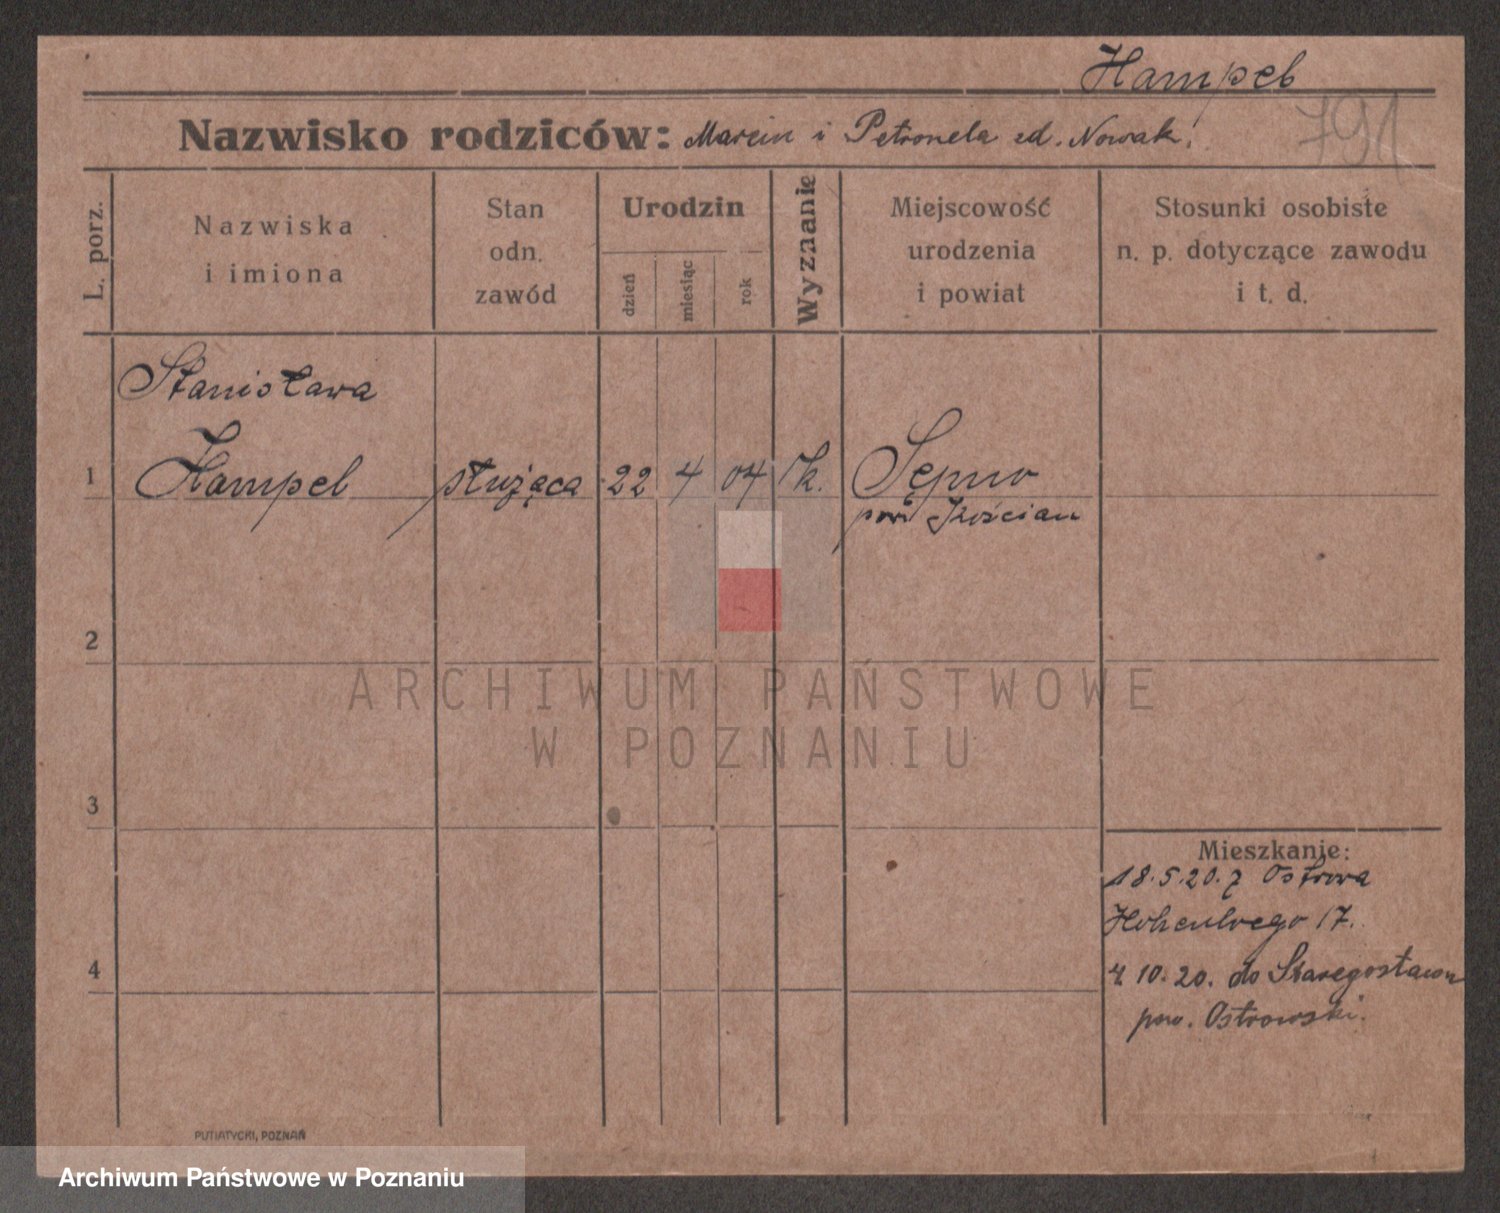 Hampel
Nazwisko rodziców: Marcin i Petronela zd. Nowak.
791
L. porz.
Nazwiska
i imiona
Stan
odn.
zawód
Urodzin
dzień
miesiąc
rok
Wyznanie
Miejscowość
urodzenia
i powiat
Stosunki osobiste
n. p. dotyczące zawodu
i t. d.
Stanisława
1 Hampel służąca 22 4 04 rk. Sepno
pow Kościan
2
3
4
Mieszkanie:
18.5.20. z Ostrowa
Hohenloego 17.
10.20. do
pow. Ostrowski.
ARCHIWUM PAŃSTWOWE
W POZNANIU
PUTIATYCKI, POZNAŃ
Archiwum Państwowe w Poznaniu